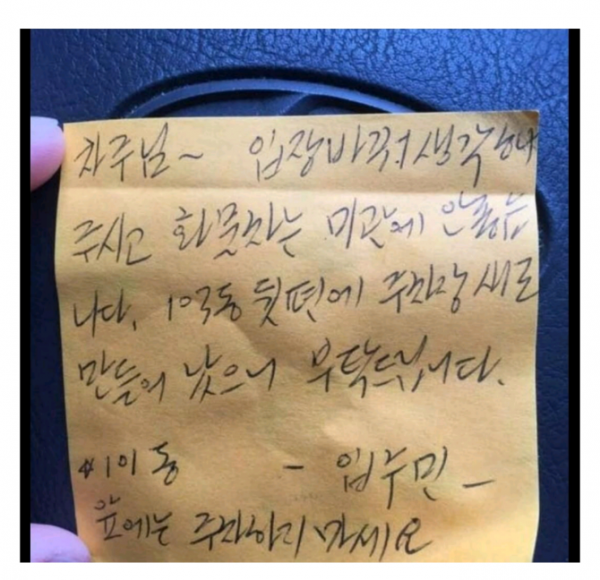 차주님~ 입장바꿔생각해
주시고 화물차는 미관에 안좋습
니다. 103동 뒷편에 주차장 새로
만들어 났으니 부탁드립니다.
101동 - 입주민 -
앞에는 주차하지 마세요